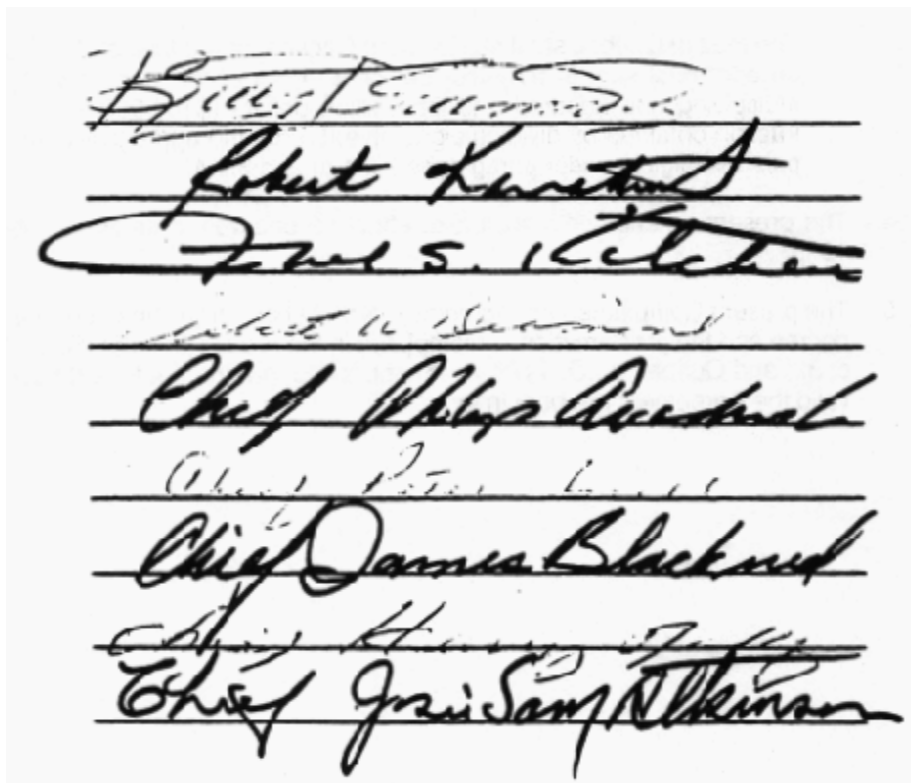 Billy Diamond
Robert Kanatewat
Abel S. Kitchen
Diamond
Chief Philip Awashish
Chief Peter
Chief James Blackned
Chief Henry
Chief Josie Sam Atkinson